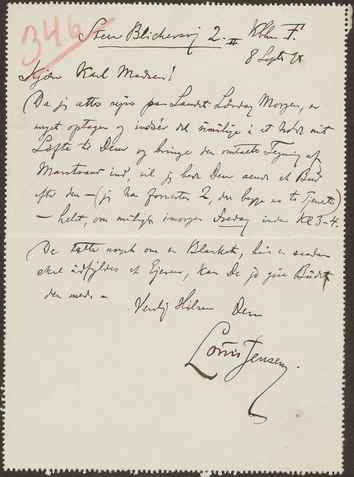 346
Steen Blichersvej 2. II Kbhn F.
8 Septbr 18
Kjære Karl Madsen!
Da jeg atter rejser paa Landet Lørdag Morgen, er
meget optagen og nødig vil i et Løfte
Løfte til Dem og bringe den omtalte Tegning af
ind, vil jeg bede Dem sende et Bud
efter den — (jeg har forresten 2, der begge er til Tjeneste)
— helst, om muligt imorgen Fredag inden Kl 3-4.
De talte noget om en Blanket, som
skal udfyldes af Ejeren, kan De jo give Budet
den med. —
Venlig Hilsen Deres
Louis Jensen.